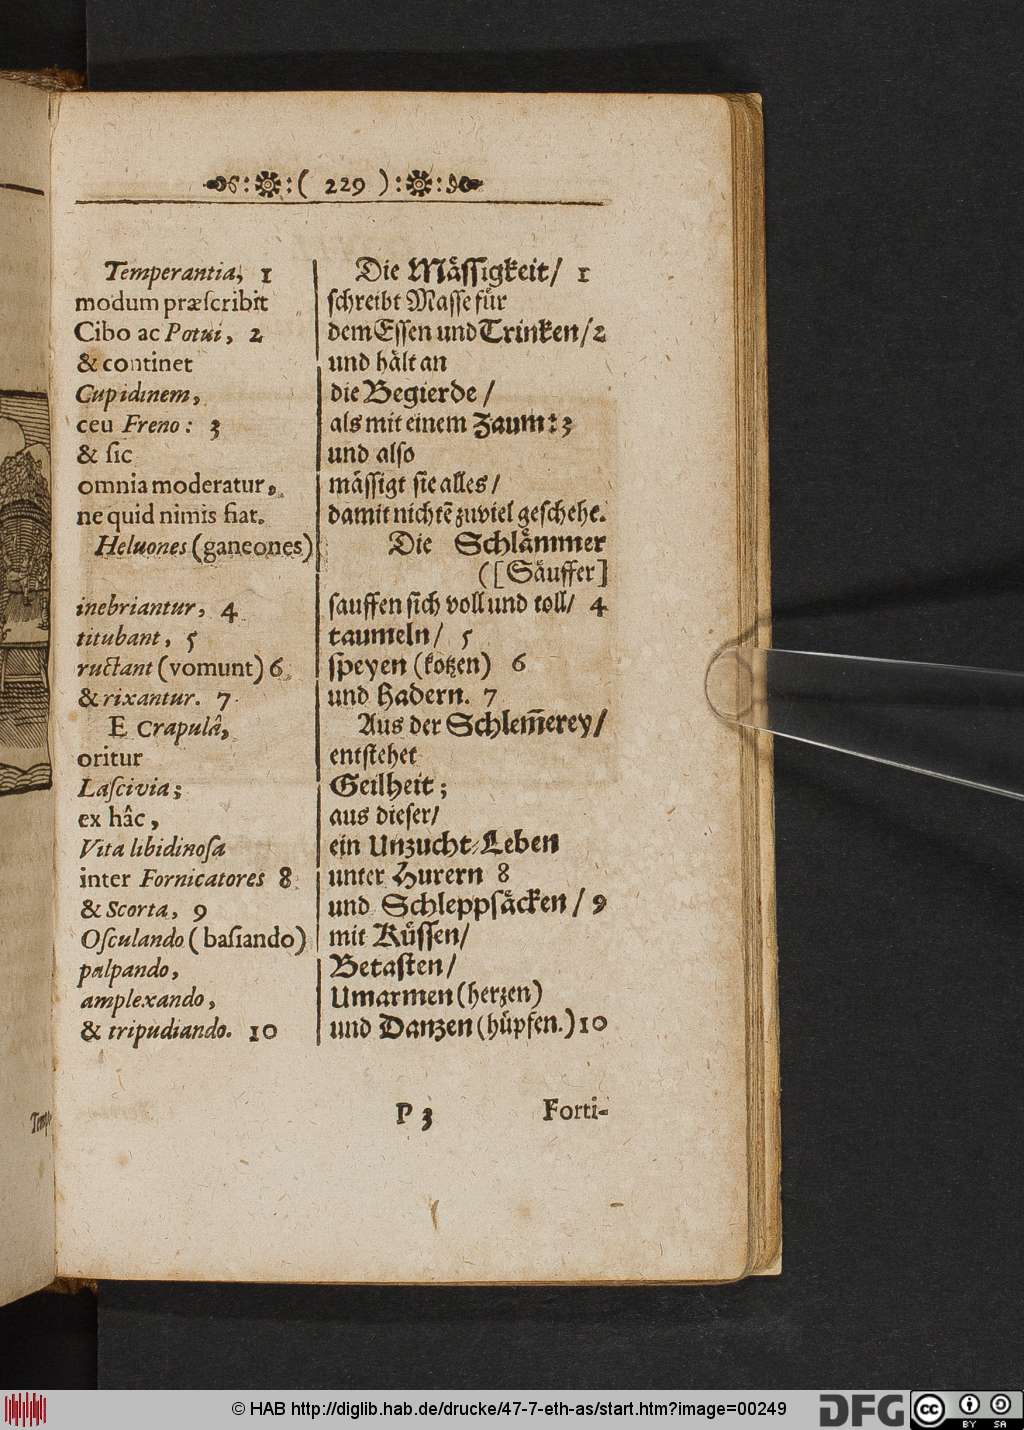 ( 229 )
Temperantia, 1
modum præſcribit
Cibo ac Potui, 2
& continet
Cupidinem,
ceu Freno: 3
& ſic
omnia moderatur,
ne quid nimis fiat.
Heluones (ganeones)
inebriantur, 4
titubant, 5
ructant (vomunt) 6
& rixantur. 7
E Crapulâ,
oritur
Laſcivia;
ex hâc,
Vita libidinoſa
inter Fornicatores 8
& Scorta, 9
Oſculando (baſiando)
palpando,
amplexando,
& tripudiando. 10
Die Mäſſigkeit/ 1
ſchreibt Maſſe für
dem Eſſen und Trinken/ 2
und hält an
die Begierde /
als mit einem Zaum: 3
und alſo
mäſſigt ſie alles/
damit nichtẽ zuviel geſchehe.
Die Schlämmer
([Säuffer]
ſauffen ſich voll und toll/ 4
taumeln/ 5
ſpeyen (kotzen) 6
und Hadern. 7
Aus der Schlem̃erey/
entſtehet
Geilheit;
aus dieſer/
ein Unzucht-Leben
unter Hurern 8
und Schleppſäcken / 9
mit Küſſen/
Betaſten/
Umarmen (herzen)
und Danzen (hüpfen.) 10
P 3
Forti-
Temp
© HAB http://diglib.hab.de/drucke/47-7-eth-as/start.htm?image=00249
DFG
cc
BY SA